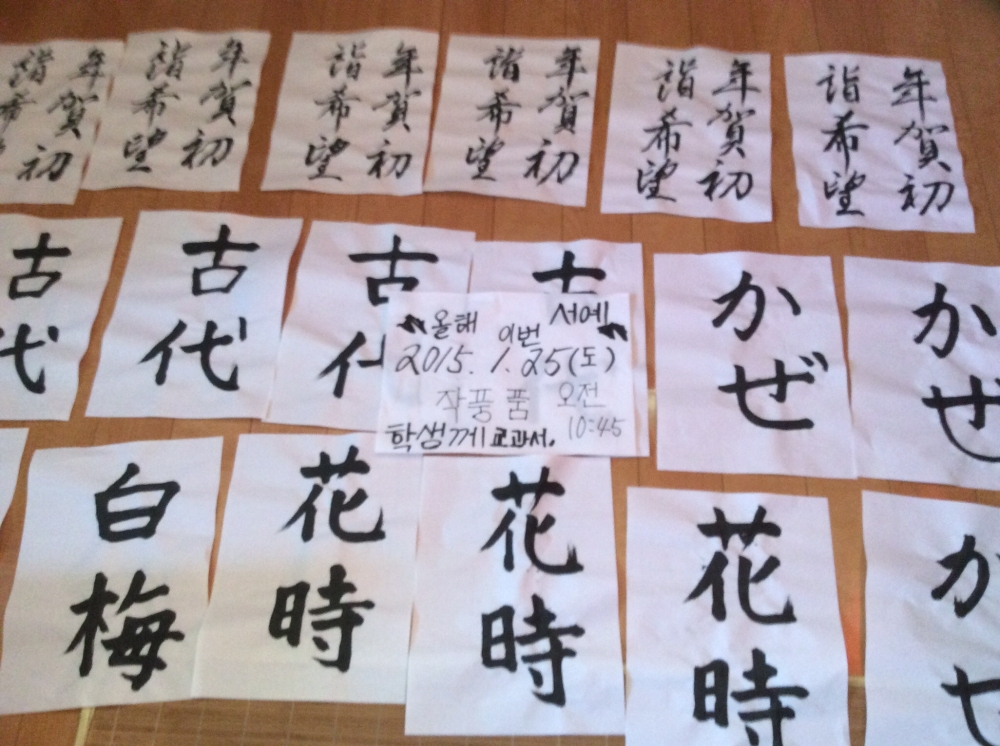 年賀初
詣希望
年賀初
詣希望
年賀初
詣希望
年賀初
詣希望
年賀初
詣希望
年賀初
詣希望
古代
古代
古
かぜ
かぜ
〃올해 이번 서예〃
2015. 1. 25(도)
작풍품 오전
학생께교과서. 10:45
白梅
花時
花時
花時
か